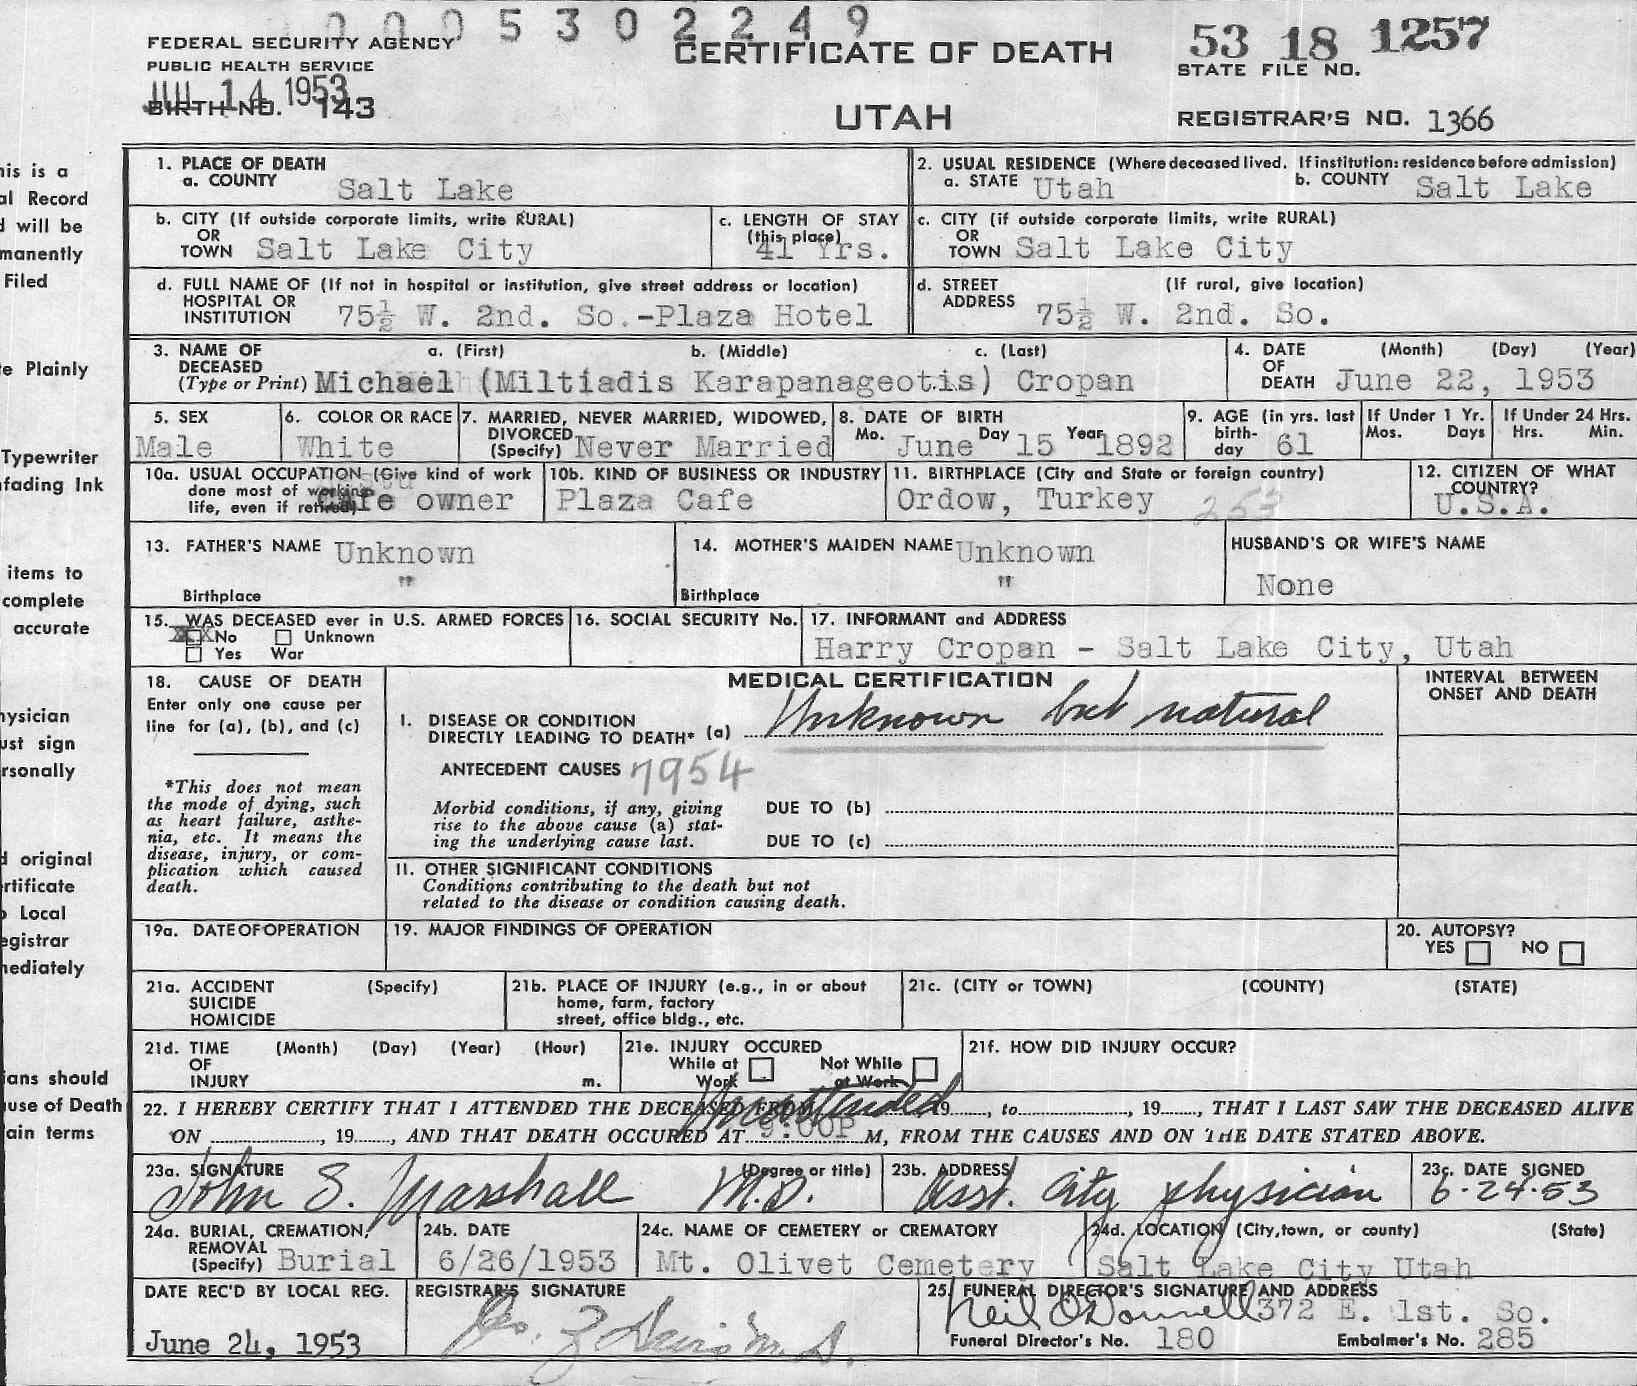 0 0 0 5 3 0 2 2 4 9
FEDERAL SECURITY AGENCY
PUBLIC HEALTH SERVICE
JUL 14 1953
BIRTH NO. 143
CERTIFICATE OF DEATH
UTAH
53 18 1257
STATE FILE NO.
REGISTRAR'S NO. 1366
his is a
al Record
d will be
manently
Filed
te Plainly
Typewriter
nfading Ink
items to
complete
accurate
hysician
ust sign
rsonally
d original
rtificate
o Local
egistrar
mediately
ians should
use of Death
ain terms
1. PLACE OF DEATH
a. COUNTY Salt Lake
2. USUAL RESIDENCE (Where deceased lived. If institution: residence before admission)
a. STATE Utah b. COUNTY Salt Lake
b. CITY (If outside corporate limits, write RURAL)
OR
TOWN Salt Lake City
c. LENGTH OF STAY
(this place)
41 Yrs.
c. CITY (if outside corporate limits, write RURAL)
OR
TOWN Salt Lake City
d. FULL NAME OF (If not in hospital or institution, give street address or location)
HOSPITAL OR
INSTITUTION 75½ W. 2nd. So.-Plaza Hotel
d. STREET (If rural, give location)
ADDRESS 75½ W. 2nd. So.
3. NAME OF a. (First) b. (Middle) c. (Last)
DECEASED
(Type or Print) Michael (Miltiadis Karapanageotis) Cropan
4. DATE (Month) (Day) (Year)
OF
DEATH June 22, 1953
5. SEX
Male
6. COLOR OR RACE
White
7. MARRIED, NEVER MARRIED, WIDOWED,
DIVORCED
(Specify) Never Married
8. DATE OF BIRTH
Mo. June Day 15 Year 1892
9. AGE (in yrs. last
birth-
day 61
If Under 1 Yr.
Mos. Days
If Under 24 Hrs.
Hrs. Min.
10a. USUAL OCCUPATION (Give kind of work
done most of working
life, even if retired) Cafe owner
10b. KIND OF BUSINESS OR INDUSTRY
Plaza Cafe
11. BIRTHPLACE (City and State or foreign country)
Ordow, Turkey 253
12. CITIZEN OF WHAT
COUNTRY?
U.S.A.
13. FATHER'S NAME Unknown
"
Birthplace
14. MOTHER'S MAIDEN NAME Unknown
"
Birthplace
HUSBAND'S OR WIFE'S NAME
None
15. WAS DECEASED ever in U.S. ARMED FORCES
No Unknown
Yes War
16. SOCIAL SECURITY No.
17. INFORMANT and ADDRESS
Harry Cropan - Salt Lake City, Utah
18. CAUSE OF DEATH
Enter only one cause per
line for (a), (b), and (c)
*This does not mean
the mode of dying, such
as heart failure, asthe-
nia, etc. It means the
disease, injury, or com-
plication which caused
death.
MEDICAL CERTIFICATION
I. DISEASE OR CONDITION
DIRECTLY LEADING TO DEATH* (a) Unknown but natural
ANTECEDENT CAUSES 7954
Morbid conditions, if any, giving
rise to the above cause (a) stat-
ing the underlying cause last.
DUE TO (b)
DUE TO (c)
II. OTHER SIGNIFICANT CONDITIONS
Conditions contributing to the death but not
related to the disease or condition causing death.
INTERVAL BETWEEN
ONSET AND DEATH
19a. DATE OF OPERATION
19. MAJOR FINDINGS OF OPERATION
20. AUTOPSY?
YES NO
21a. ACCIDENT (Specify)
SUICIDE
HOMICIDE
21b. PLACE OF INJURY (e.g., in or about
home, farm, factory
street, office bldg., etc.
21c. (CITY or TOWN) (COUNTY) (STATE)
21d. TIME (Month) (Day) (Year) (Hour)
OF
INJURY m.
21e. INJURY OCCURED
While at Not While
Work at Work
21f. HOW DID INJURY OCCUR?
22. I HEREBY CERTIFY THAT I ATTENDED THE DECEASED FROM Unattended 19......, to...................., 19......, THAT I LAST SAW THE DECEASED ALIVE
ON ..................., 19......, AND THAT DEATH OCCURED AT 9:00P M, FROM THE CAUSES AND ON THE DATE STATED ABOVE.
23a. SIGNATURE (Degree or title)
John S. Marshall M.D.
23b. ADDRESS
Asst. City Physician
23c. DATE SIGNED
6-24-53
24a. BURIAL, CREMATION,
REMOVAL
(Specify) Burial
24b. DATE
6/26/1953
24c. NAME OF CEMETERY or CREMATORY
Mt. Olivet Cemetery
24d. LOCATION (City, town, or county) (State)
Salt Lake City Utah
DATE REC'D BY LOCAL REG.
June 24, 1953
REGISTRAR'S SIGNATURE
25. FUNERAL DIRECTOR'S SIGNATURE AND ADDRESS
Neil O'Donnell 372 E. 1st. So.
Funeral Director's No. 180 Embalmer's No. 285